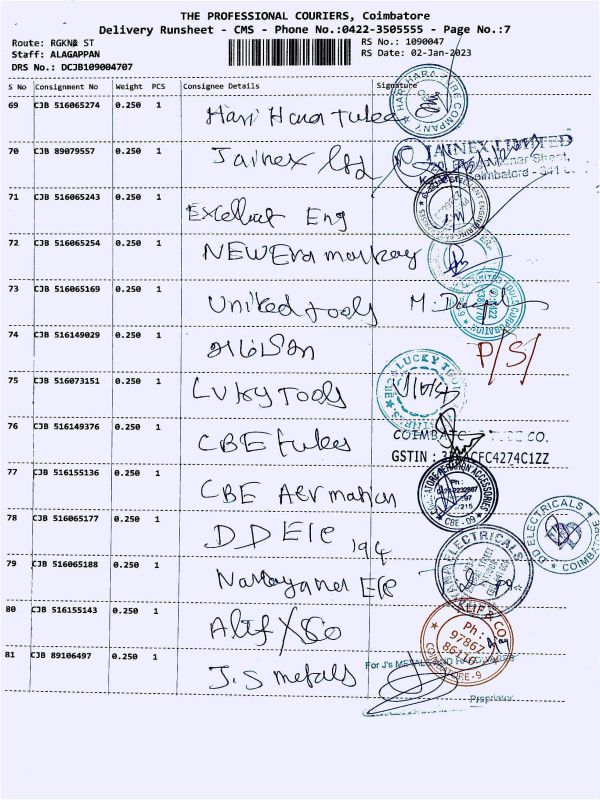 THE PROFESSIONAL COURIERS, Coimbatore
Delivery Runsheet - CMS - Phone No.:0422-3505555 - Page No.:7
Route: RGKNR ST
RS No.: 1090047
Staff: ALAGAPPAN
RS Date: 02-Jan-2023
DRS No.: DCJB109004707
S No Consignment No Weight PCS Consignee Details Signature
69 CJB 516065274 0.250 1 Hari Hara Tube
HARI HARA TUBE COMPANY
70 CJB 89079557 0.250 1 Jainex Ltd
JAINEX LIMITED
Street,
Coimbatore - 641
71 CJB 516065243 0.250 1 Excellent Eng
72 CJB 516065254 0.250 1 NEWEra markay
73 CJB 516065169 0.250 1 United tools
74 CJB 516149029 0.250 1
P/S/
75 CJB 516073151 0.250 1 Lvky Tools
LUCKY TOOL
76 CJB 516149376 0.250 1 CBE tubes
COIMBATO CO.
GSTIN : CFC4274C1ZZ
77 CJB 516155136 0.250 1 CBE Aermation
ACCESSORIES
Ph :
CBE - 09
78 CJB 516065177 0.250 1 DD Ele 194
DD ELECTRICALS
COIMBATO
79 CJB 516065188 0.250 1 Narayana Ele
ELECTRICALS
80 CJB 516155143 0.250 1 Alif & Co
ALIF & CO
Ph :
97867
86110
81 CJB 89106497 0.250 1 J.S metals
For J's METALS
Proprietor